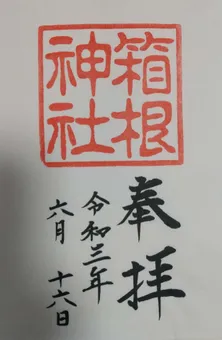 箱根
神社
奉拝
令和三年
六月 十六日